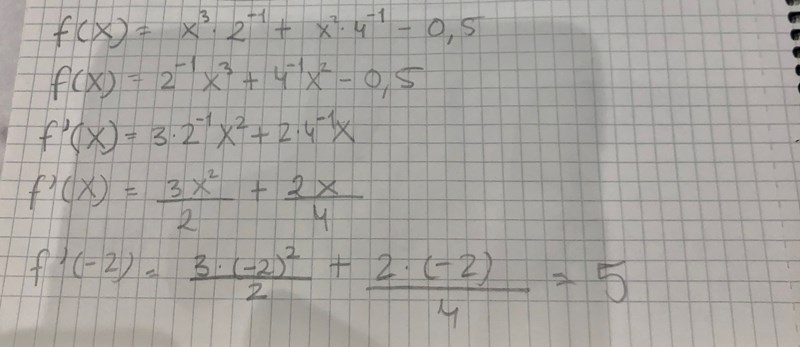 f(x) = x³·2⁻¹ + x²·4⁻¹ - 0,5
f(x) = 2⁻¹x³ + 4⁻¹x² - 0,5
f'(x) = 3·2⁻¹x² + 2·4⁻¹x
f'(x) = 3x²/2 + 2x/4
f'(-2) = 3·(-2)²/2 + 2·(-2)/4 = 5